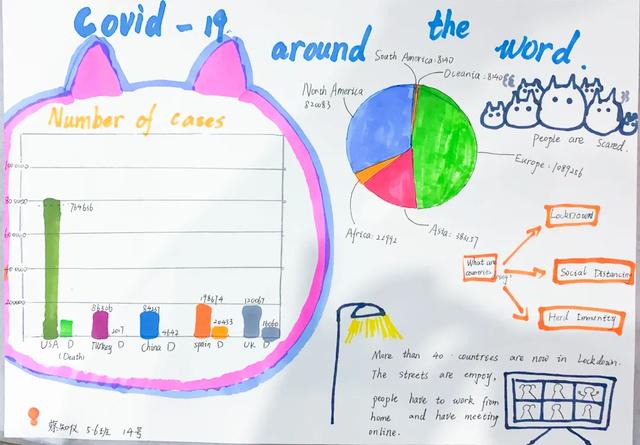 Covid - 19
around the word.
Number of cases
800000
600000
400000
200000
764636
86306
2017
84237
4642
198674
20453
120067
16060
USA D
(Death)
Turkey D
China D
Spain D
UK D
South America: 8140
Oceania: 8140
North America
820083
Europe: 1089256
Asia: 386137
Africa: 22992
people are scared.
What are
countries
Lockdown
Social Distancing
Herd Immunity
More than 40 countries are now in Lockdown.
The streets are empoy,
people have to work from
home and have meeting
online.
5.6班 14号